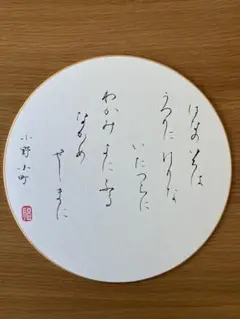 はなのいろは
うつりにけりな
いたつらに
わかみよにふる
なかめ
せしまに
小野小町